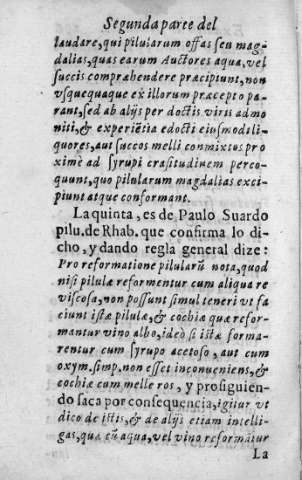 Segunda parte del
laudare, qui pilularum offas seu mag-
dalias, quas earum Auctores aqua, vel
succis comprahendere præcipiunt, non
vsquequaque ex illorum præcepto pa-
rant, sed ab alijs per doctis viris admo
niti, & experiẽtia edocti eiusmodi li-
quores, aut succos melli conmixtos pro
ximè ad syrupi crasitudinem perco-
quunt, quo pilularum magdalias exci-
piunt atque conformant.
La quinta, es de Paulo Suardo
pilu. de Rhab. que confirma lo di-
cho, y dando regla general dize:
Pro reformatione pilularũ nota, quod
nisi pilulæ reformentur cum aliqua re
viscosa, non possunt simul teneri vt fa
ciunt istæ pilulæ, & cochiæ quæ refor-
mantur vino albo, ideò si istæ forma-
rentur cum syrupo acetoso, aut cum
oxym. simp. non esset inconueniens, &
cochiæ cum melle ros, y prosiguien-
do saca por consequencia, igitur vt
dico de istis, & de alijs etiam intelli-
gas, quæ cũ aqua, vel vino reformãtur
La